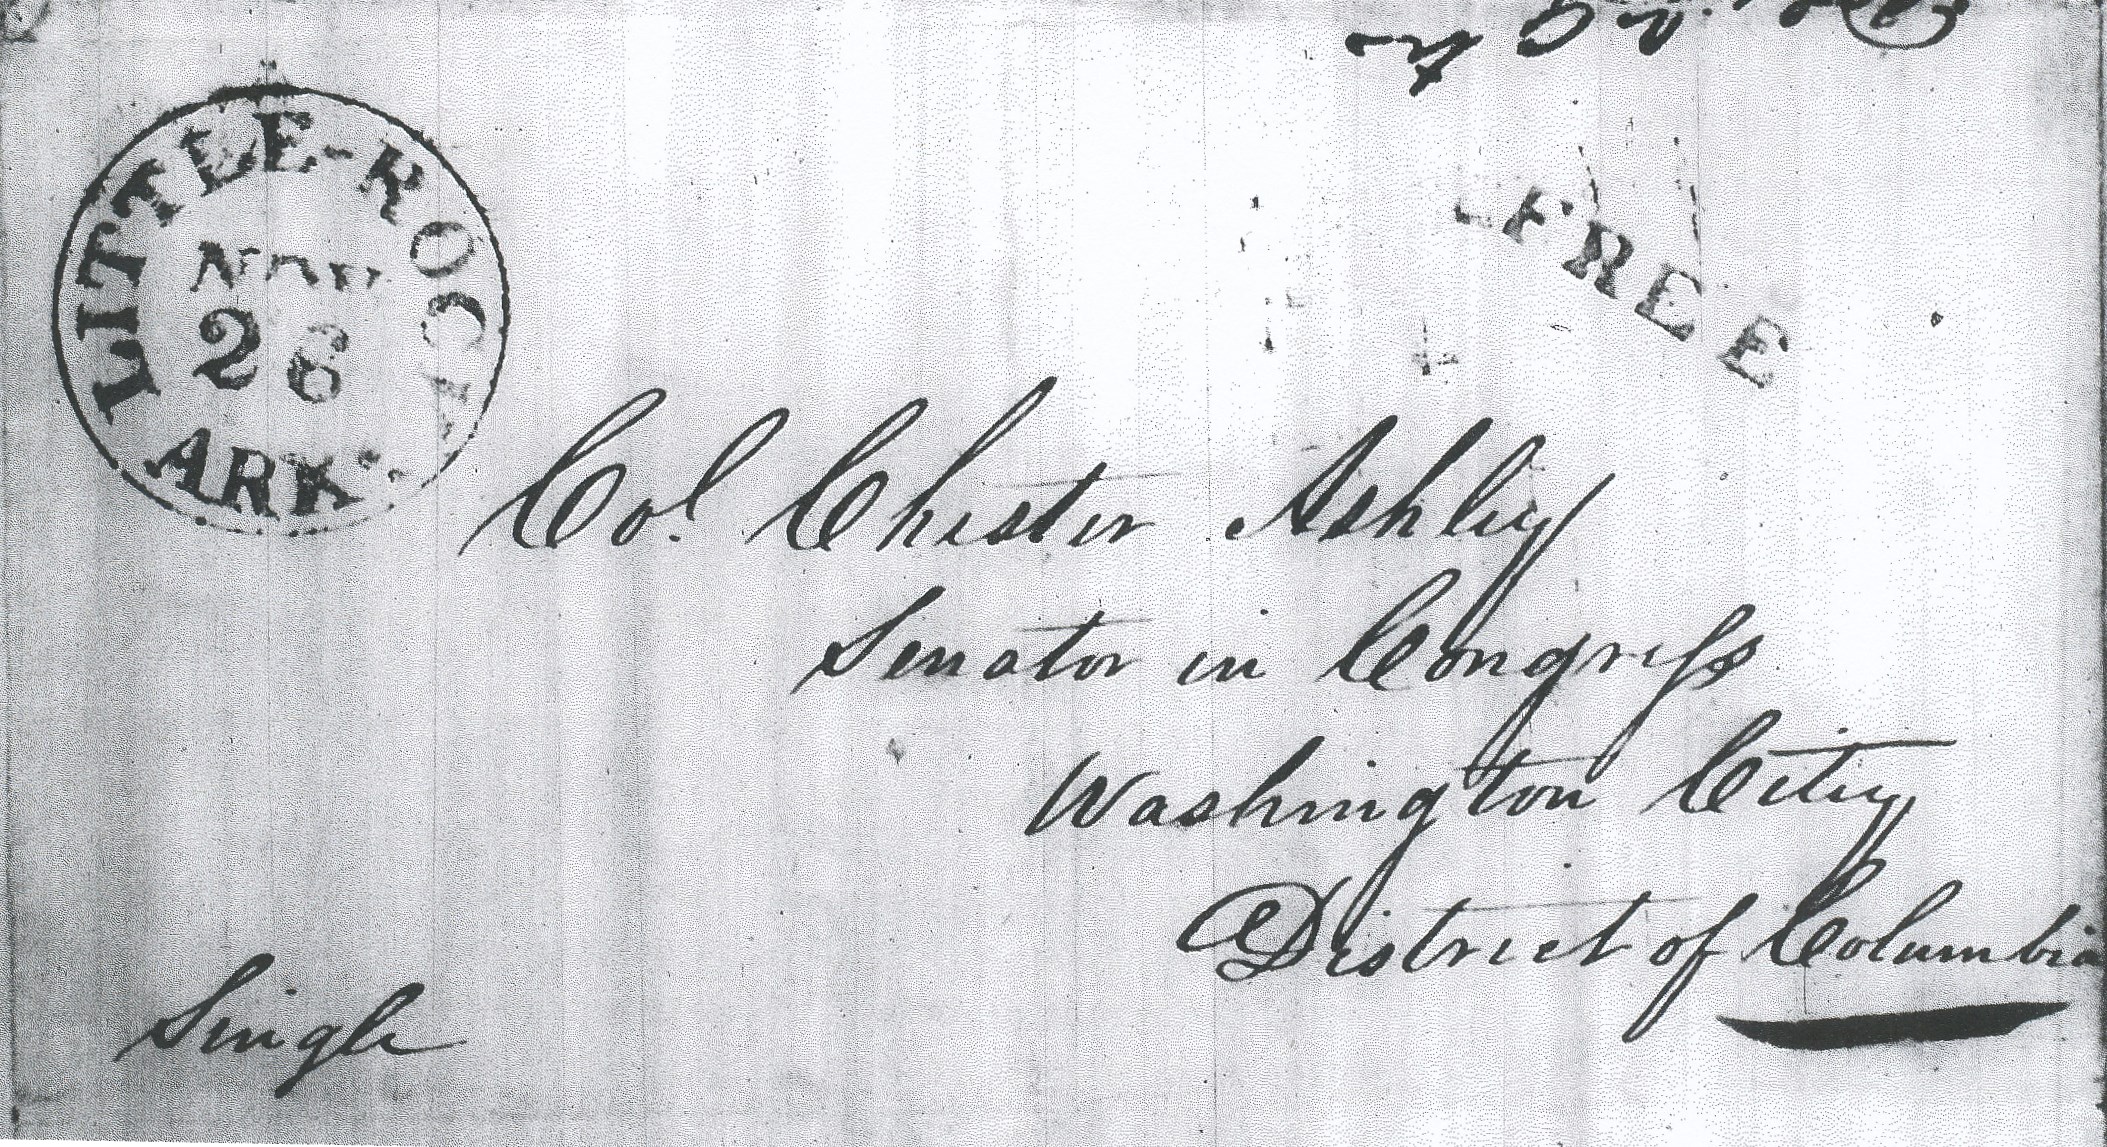 LITTLE-ROCK
NOV
26
ARKS
FREE
Col. Chester Ashley
Senator in Congress
Washington City
District of Columbia
Single